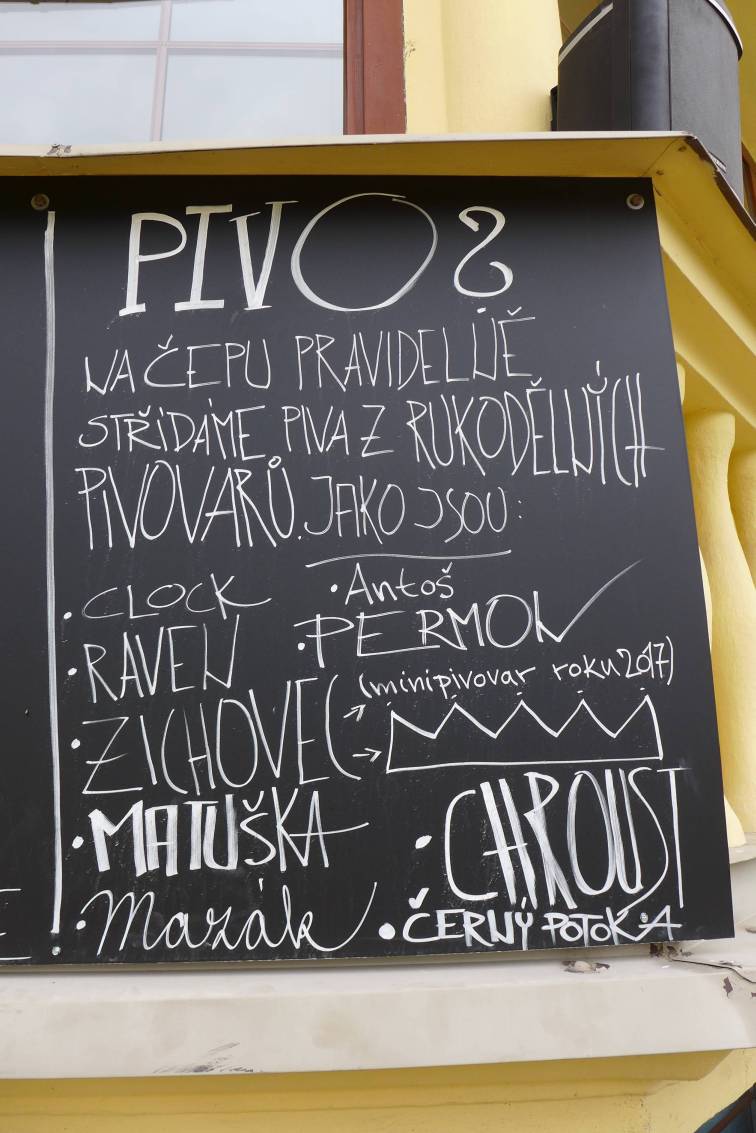 PIVO?
NA ČEPU PRAVIDELNĚ
STŘÍDÁME PIVA Z RUKODĚLNÝCH
PIVOVARŮ. JAKO JSOU:
• CLOCK
• RAVEN
• ZICHOVEC → (minipivovar roku 2017)
→
• MATUŠKA
• Mazák
• Antoš
• PERMON
• CHROUST
• ČERNÝ POTOKA